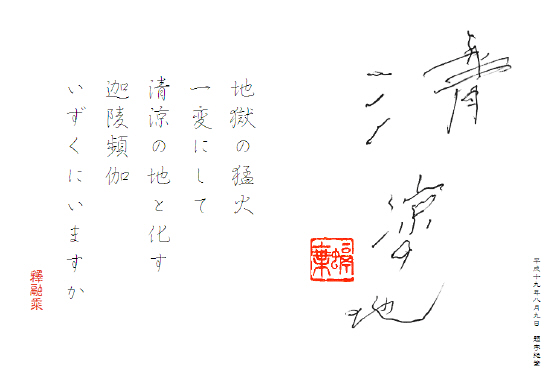 平成十九年八月九日
清涼地
地獄の猛火
一変にして
清涼の地と化す
迦陵頻伽
いずくにいますか
釋融乘